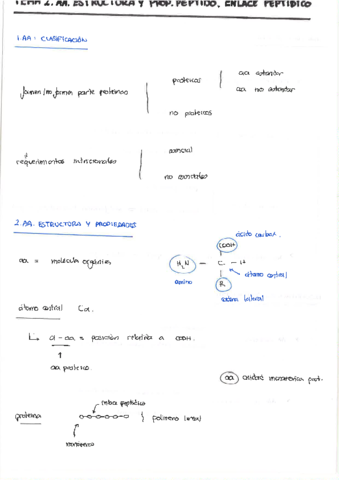 TEMA 2. AA. ESTRUCTURA Y PROP. PÉPTIDO. ENLACE PEPTÍDICO
1. AA: CLASIFICACIÓN
forman/no forman parte proteínas
proteicos
aa estándar
aa no estándar
no proteicos
requerimientos nutricionales
esencial
no esenciales
2. AA. ESTRUCTURA Y PROPIEDADES
aa = molécula orgánica
ácido carbox.
COOH
H2N — C — H
amino
átomo central
R
cadena lateral
átomo central Cα.
α-aa = posición relativa a COOH.
aa proteico
aa
prot.
proteína
enlace peptídico
polímero lineal
monómero